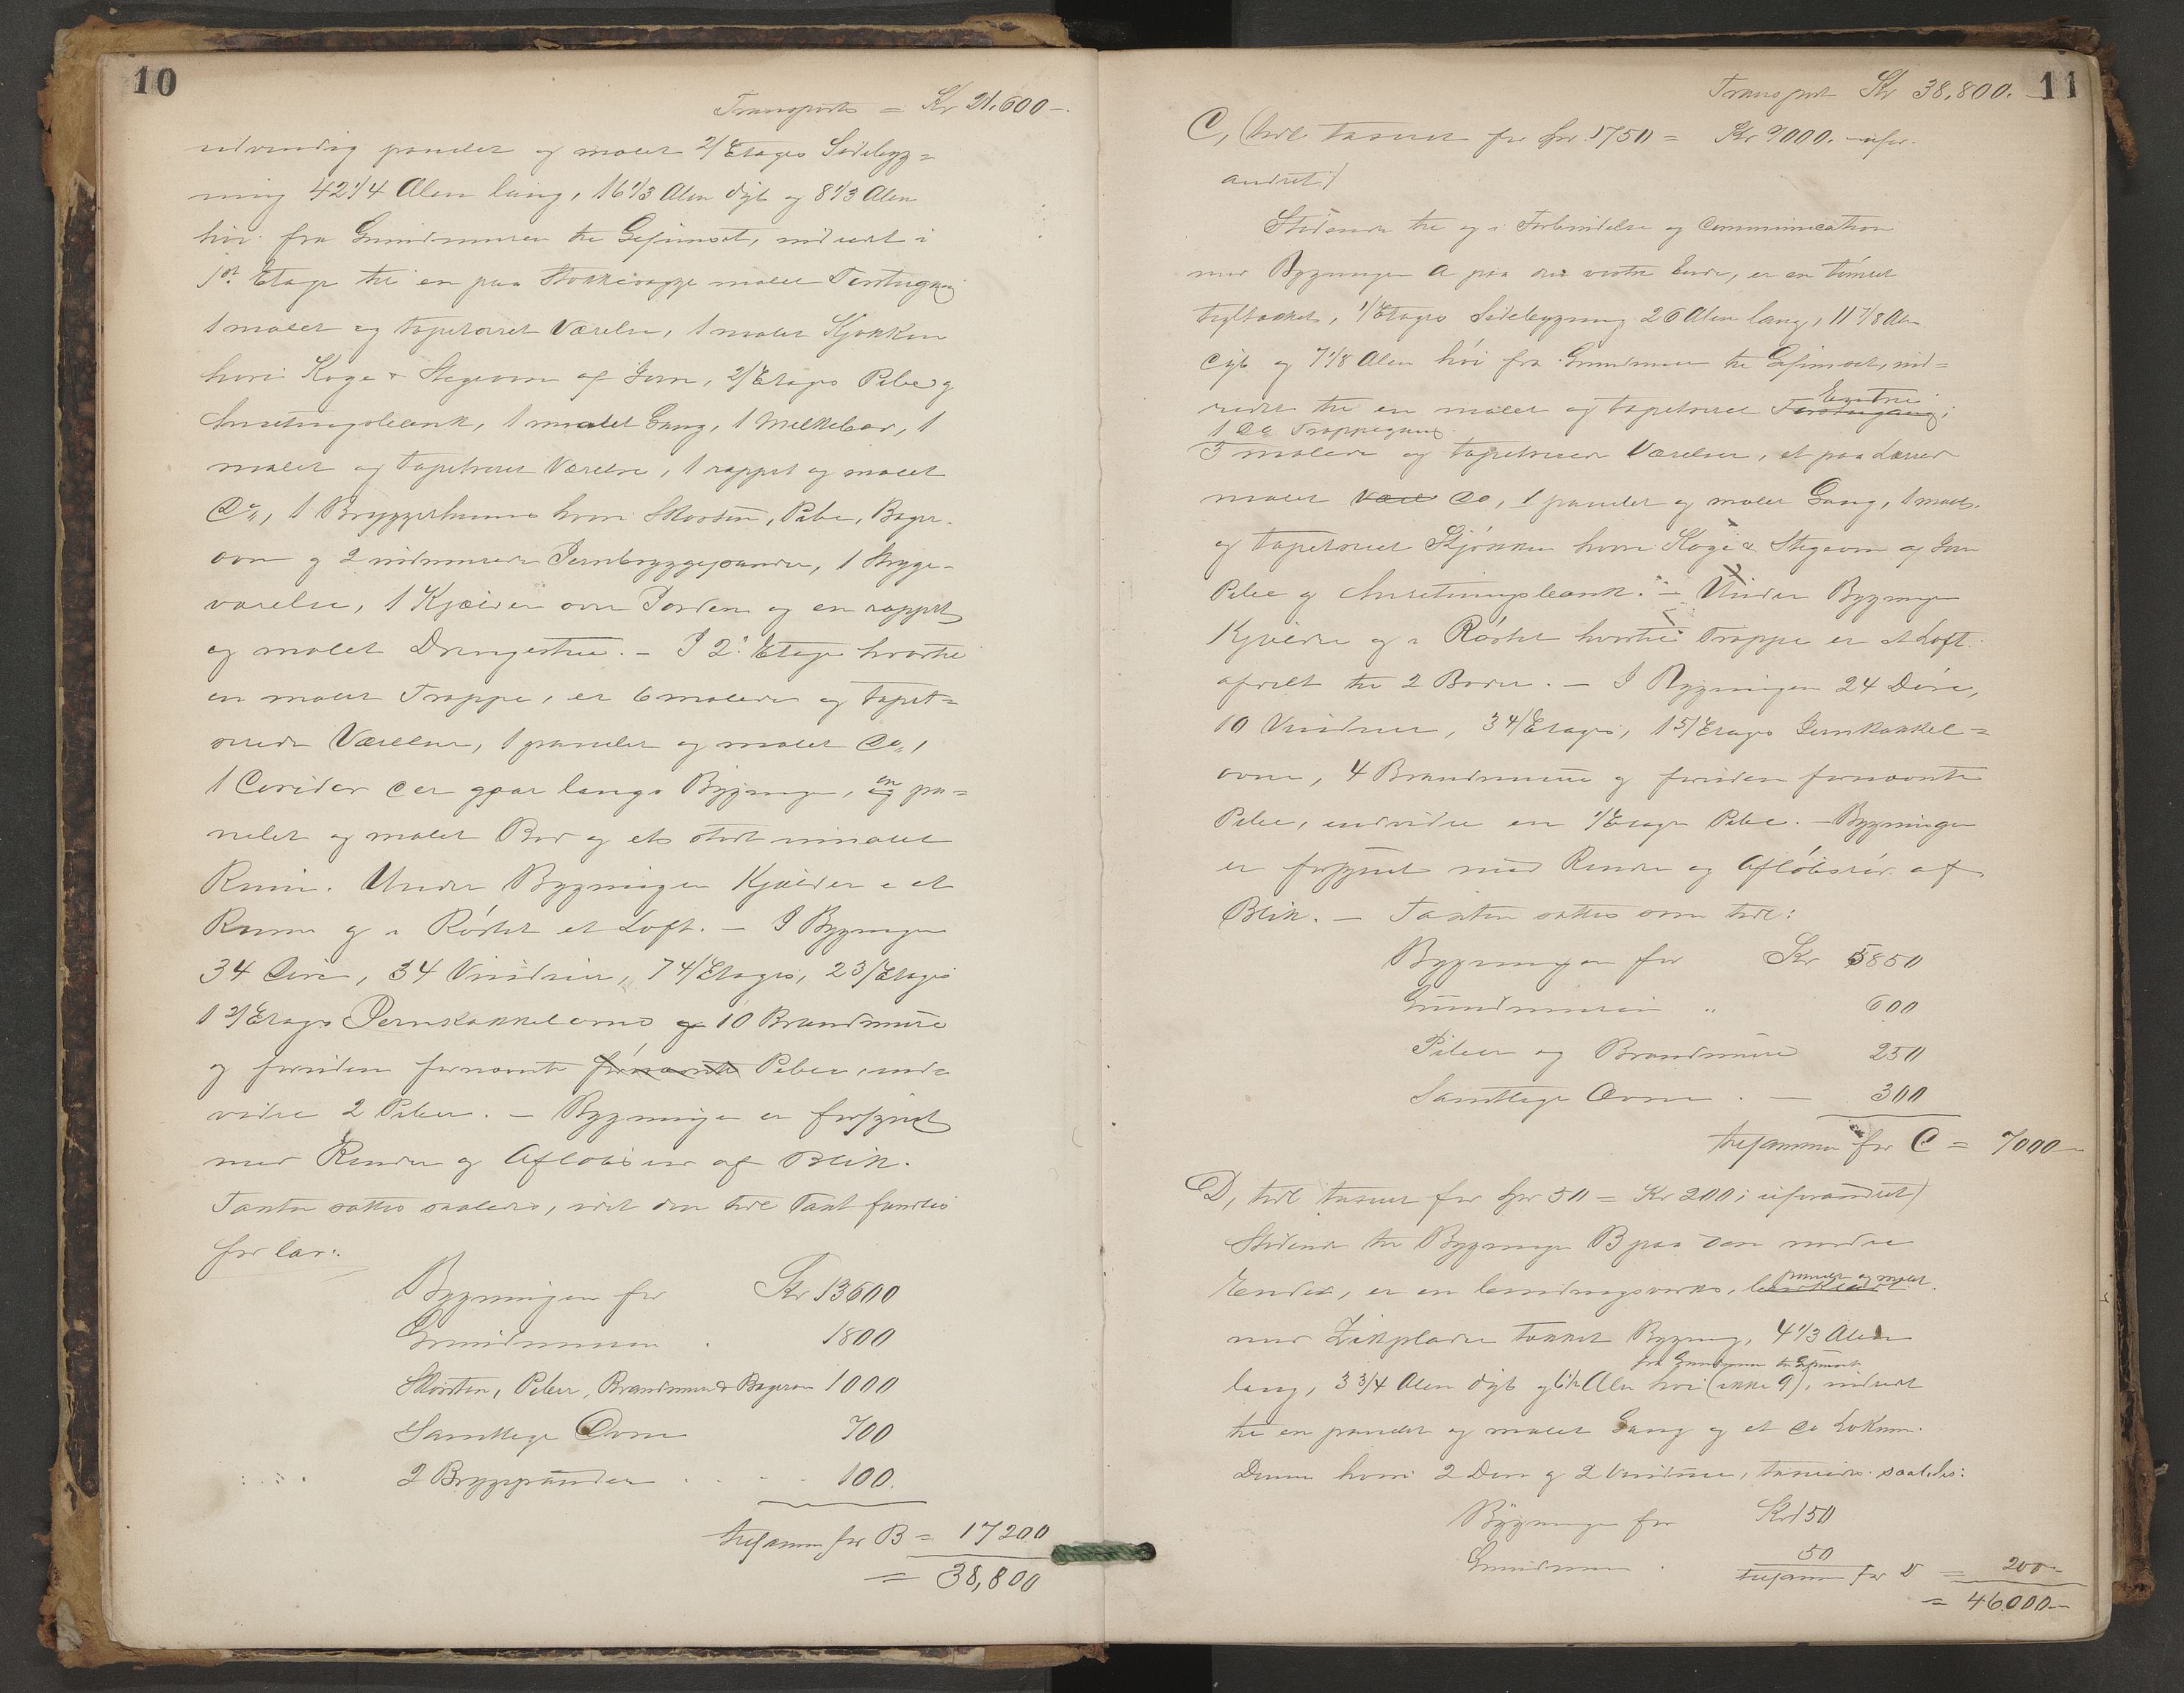 10
Transport = Kr 21.600 -
udvendig panelet og malet 2/Etages Sidebyg=
ning 42 1/4 Alen lang, 16 1/3 Alen dyb og 8 1/3 Alen
høi fra Grundmuren til Gesimset, indredt i
1st Etage til en paa Stokkevægge malet Forstugang
1 malet og tapetseret Værelse, 1 malet Kjøkken
hvori Koge & Stegeovn af Jern, 2/Etages Pibe og
Anretningsbænk, 1 malet Gang, 1 Melkebod, 1
malet og tapetseret Værelse, 1 rappet og malet
Do, 1 Bryggerhuus hvori Skorsten, Pibe, Bager-
ovn og 2 indmurede Jernbryggepander, 1 Stryge-
værelse, 1 Kjælder over Jorden og en rappet
og malet Drengestue. - I 2. Etage hvortil
en malet Trappe, er 6 malede og tapet=
serede Værelser, 1 panelet og malet Do,
1 Coridor der gaar langs Bygningen, en pa=
nelet og malet Bod og et stort umalet
Rum. Under Bygningen Kjælder i et
Rum og i Røstet et Loft. - I Bygningen
34 Døre, 34 Vinduer, 7 4/Etages, 2 3/Etages
1 2/Etages Jernkakkelovne og 10 Brandmure
og foruden fornævnte fornævnte Piber, end=
videre 2 Piber. - Bygningen er forsynet
med Render og Afløbsrør af Blik.
Taxten sattes saaledes, idet den hele Taxt fandtes
for lav:
Bygningen for Kr 13600
Grundmuren . 1800
Skorsten, Piber, Brandmure & Bagerovn 1000
Samtlige Ovne 700
2 Bryggepander . . . 100.
tilsammen for B = 17200
= 38,800
11
Transport Kr 38,800. -
C, (hele taxeret for Spd. 1750 = Kr 7000. ufor-
andret)
Staaende til og i Forbindelse og Communication
med Bygningen A paa den vestre Ende, er en tømret
tegltækket, 1/Etages Sidebygning 26 Alen lang, 11 7/8 Alen
dyb og 7 1/8 Alen høi fra Grundmuren til Gesimset, ind=
redet til en malet og tapetseret Forstugang,
1 Do Trappegang
3 malede og tapetserede Værelser, et paa Lærred
malet Vær Do, 1 panelet og malet Gang, 1 malet
og tapetseret Kjøkken hvori Koge & Stegeovn af Jern
Pibe og Anretningsbænk. - Under Bygningen
Kjælder og i Røstet hvortil Trappe er et Loft
afdelt til 2 Boder. - I Bygningen 24 Døre,
10 Vinduer, 3 4/Etages, 1 5/Etages Jernkakkel=
ovne, 4 Brandmure og foruden fornævnte
Pibe, endvidere en 1/Etages Pibe. - Bygningen
er forsynet med Render og Afløbsrør af
Blik. - Taxten sattes som hele:
Bygningen for Kr 5850
Grundmuren " 600
Piber og Brandmure 250
Samtlige Ovne . - 300
tilsammen for C = 7000 -
D, hele taxeret for Spd 50 = Kr 200; uforandret)
Staaende til Bygningen B paa den nordre
Ende, er en bindingsverks, panelet og malet
med Zinkplader tækket Bygning, 4 1/3 Alen
fra Grundmuren til Gesimset
lang, 3 3/4 Alen dyb og 6 1/2 Alen høi (ikke 9), indredt
til en panelet og malet Gang og et Do Lokum.
Denne hvori 2 Døre og 2 Vinduer, taxeres saaledes:
Bygningen for Kr 150
Grundmuren . 50
tilsammen for D = 200 -
= 46.000 -